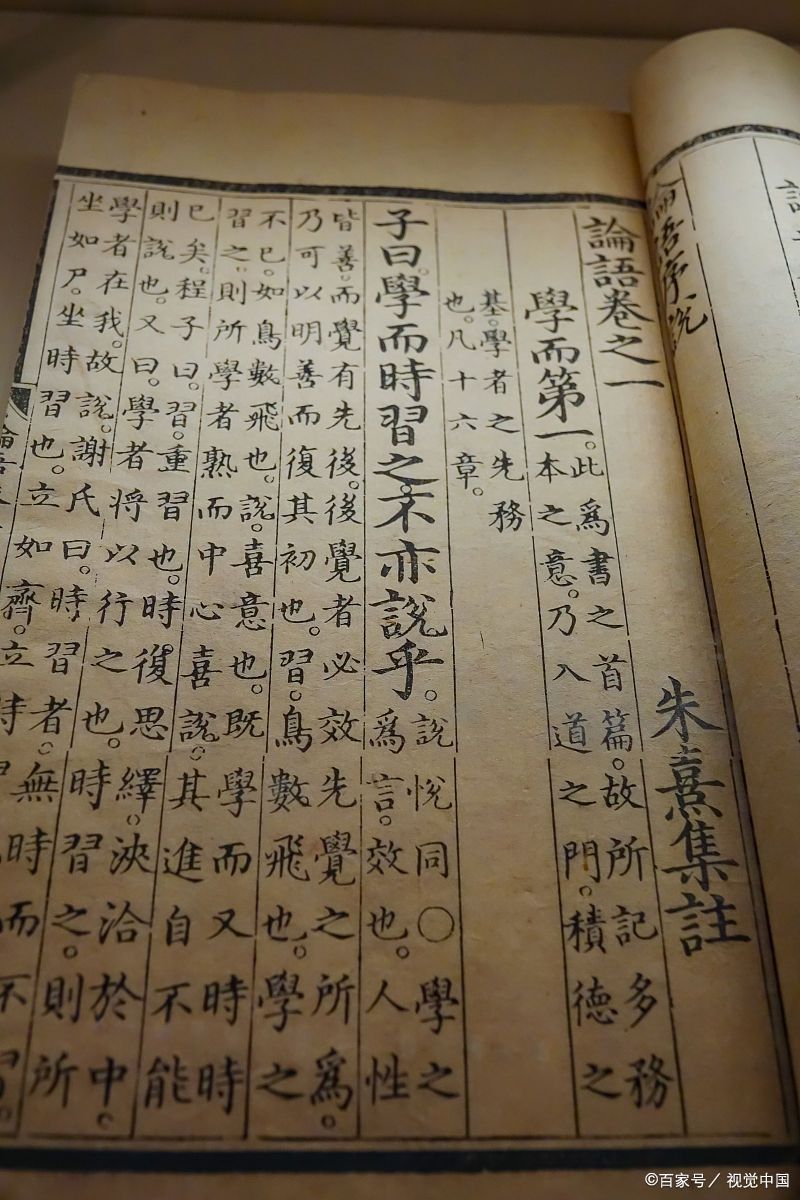 論語序說
論語卷之一
朱熹集註
學而第一。
此爲書之首篇。故所記多務
本之意。乃入道之門。積德之
基。學者之先務
也。凡十六章。
子曰。學而時習之。不亦說乎。
說悅同○學之
爲言。效也。人性
皆善。而覺有先後。後覺者必效先覺之所爲。
乃可以明善而復其初也。習。鳥數飛也。學之
不已。如鳥數飛也。說。喜意也。既學而又時時
習之。則所學者熟而中心喜說。其進自不能
已矣。程子曰。習。重習也。時復思繹。浹洽於中。
則說也。又曰。學者將以行之也。時習之。則所
學者在我。故說。謝氏曰。時習者。無時而不習。
坐如尸。坐時習也。立如齊。立時
©百家号／视觉中国